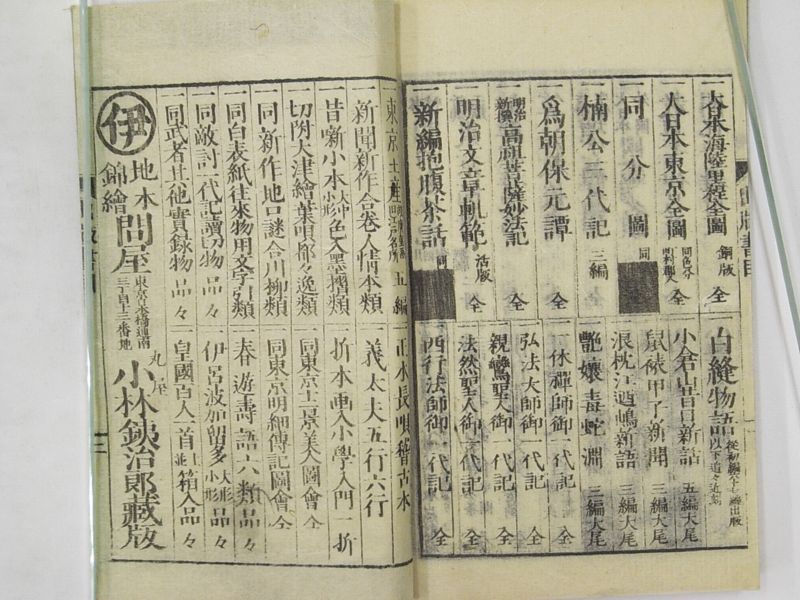 大日本海陸里程全圖 銅版 全
大日本東京全圖 同色分 全
同分圖 同
楠公三代記 三編
爲朝保元譚 全
明治新撰 高祖菩薩妙法記 全
明治文章軌範 活版 全
新編抱腹茶話 同
白縫物語
小倉山昔日新話 五編大尾
鼠祿甲子新聞 三編大尾
浪枕江の嶋新語 三編大尾
艶孃毒蛇淵 三編大尾
一休禪師御一代記 全
弘法大師御一代記 全
親鸞聖人御一代記 全
法然聖人御一代記 全
西行法師御一代記 全
一東京土産 五編
一新聞新作合巻人情本類
一昔噺小本 大中小形 色入墨摺類
一切附大津繪葉唄都々逸類
一同新作地口謎合川柳類
一同白表紙往來物用文字引類
一同敵討一代記讀切物品々
一同武者其他實録物品々
一正本長唄稽古本
一義太夫五行六行
一折本画入小學入門一折
一同東京十二景美人圖會 全
一同東京明細傳記圖會 全
一春遊壽語六類品々
一伊呂波加留多 大形小形 品々
一皇國百人一首 並箱入品々
伊
地本
錦繪
問屋
東京日本橋通南
三丁目十三番地
丸屋
小林鉄治郎藏版